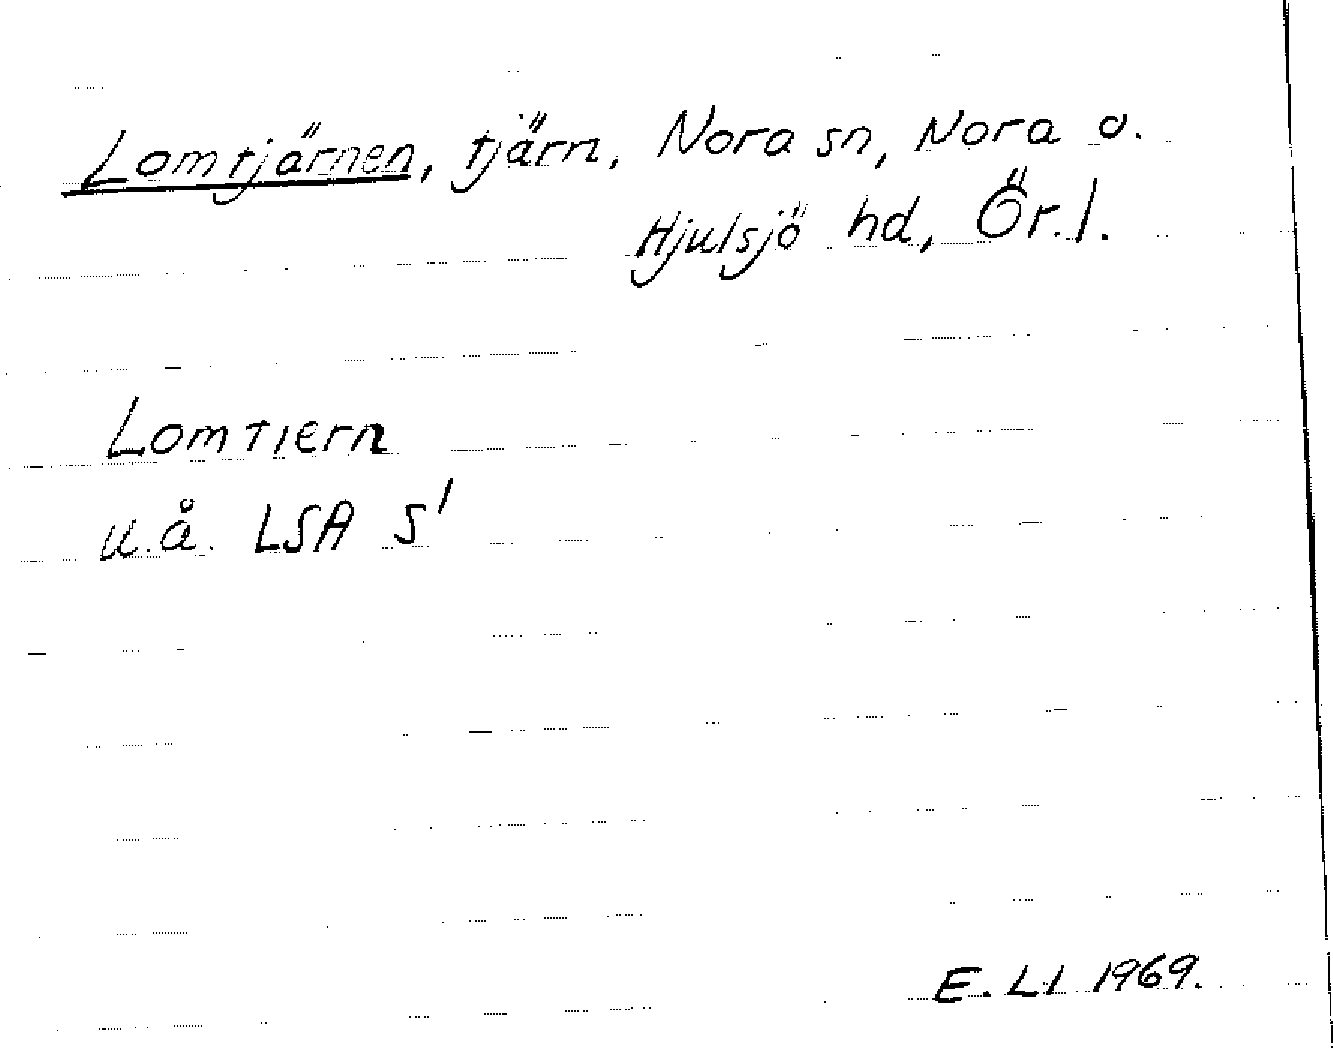 Lomtjärnen, tjärn, Nora sn, Nora o.
Hjulsjö hd, Ör.l.
Lomtiern
u.å. LSA S1
E. Lt 1969.